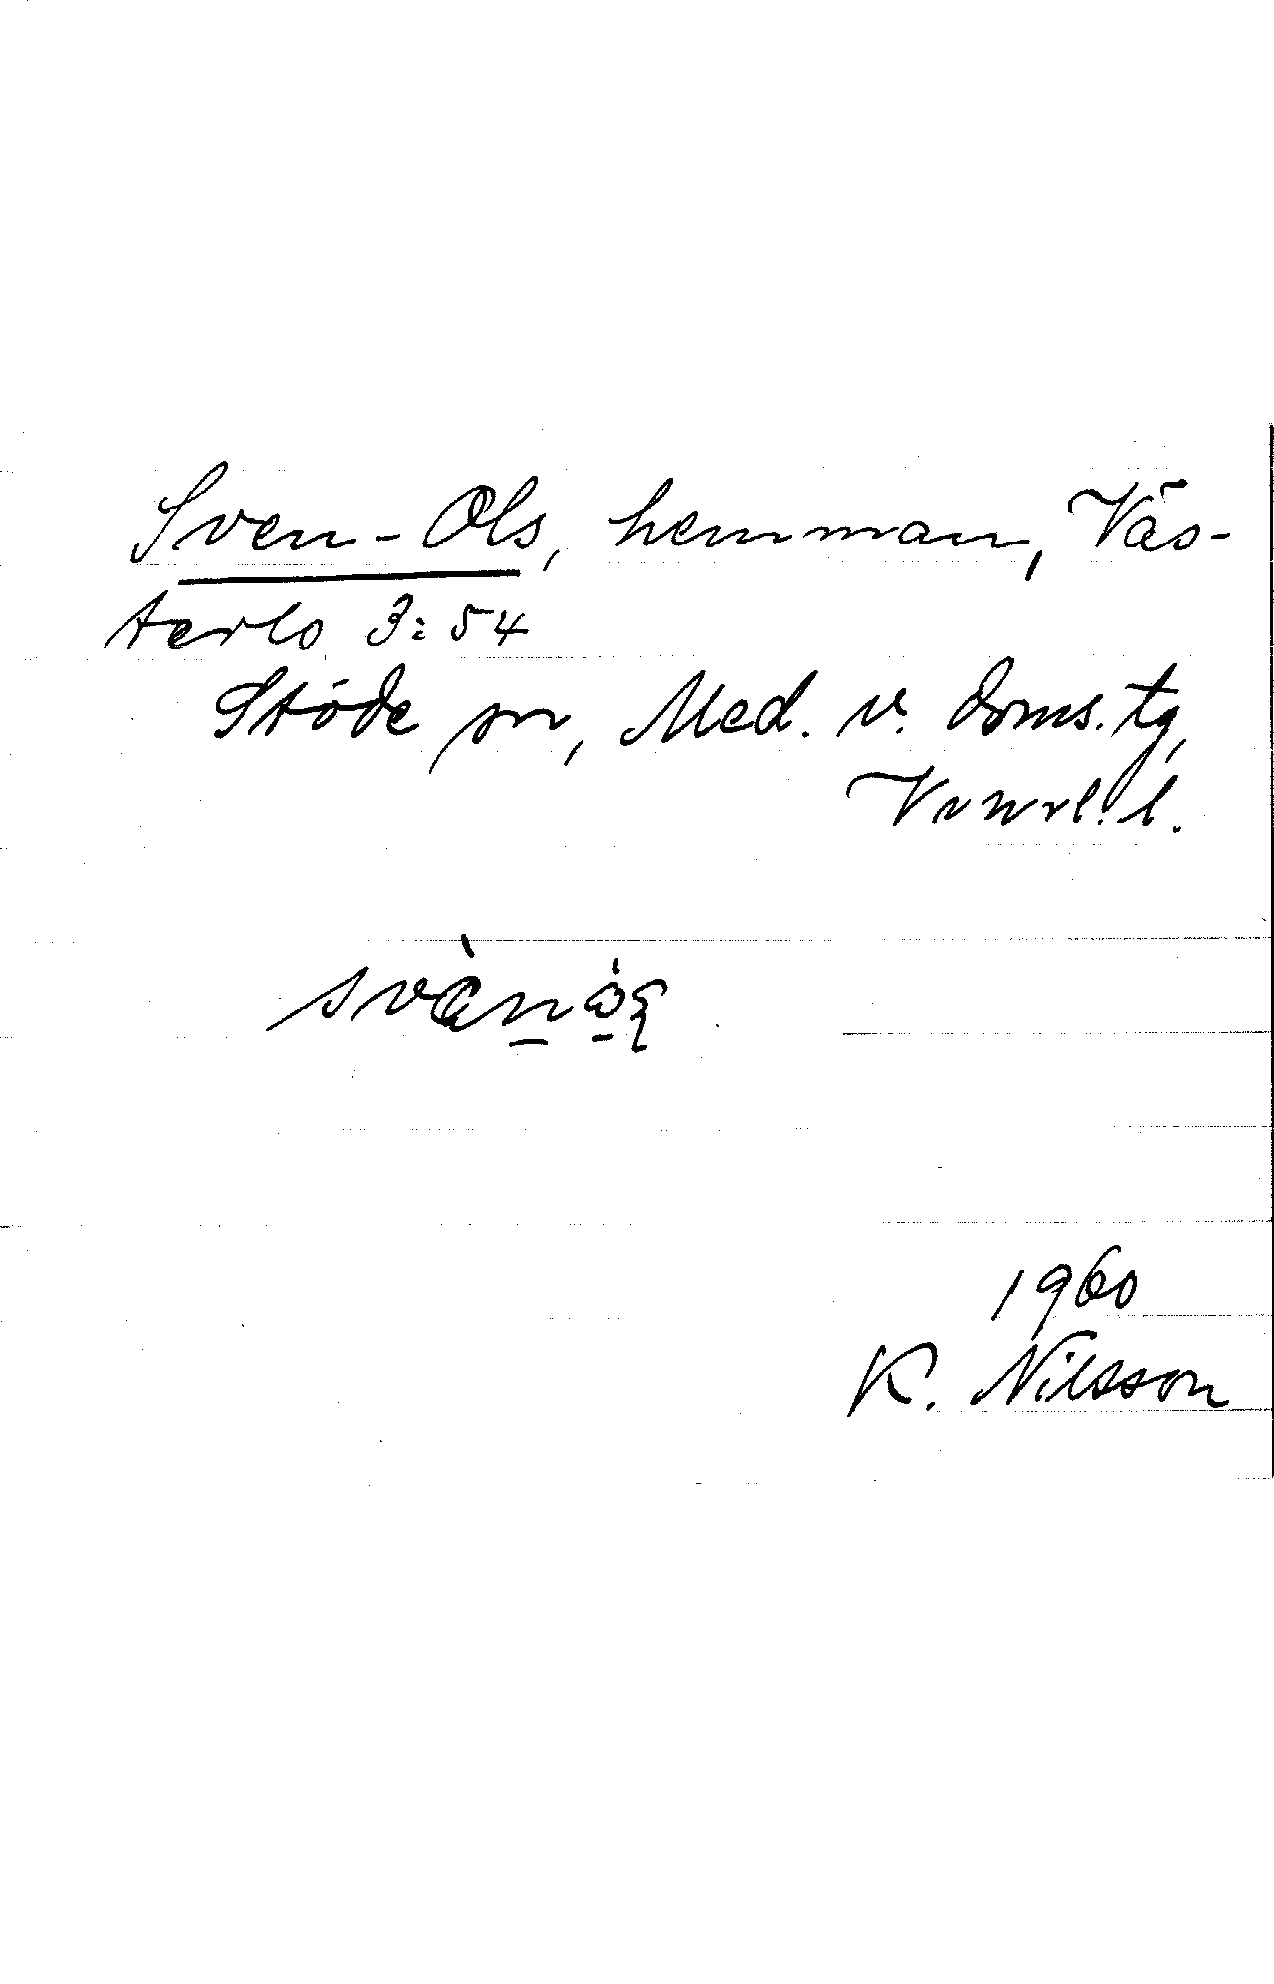 Sven-Ols, hemman, Väs-
terlo 3:54
Stöde sn, Med. v. doms. tg,
Vvnrl. l.
1960
K. Nilsson